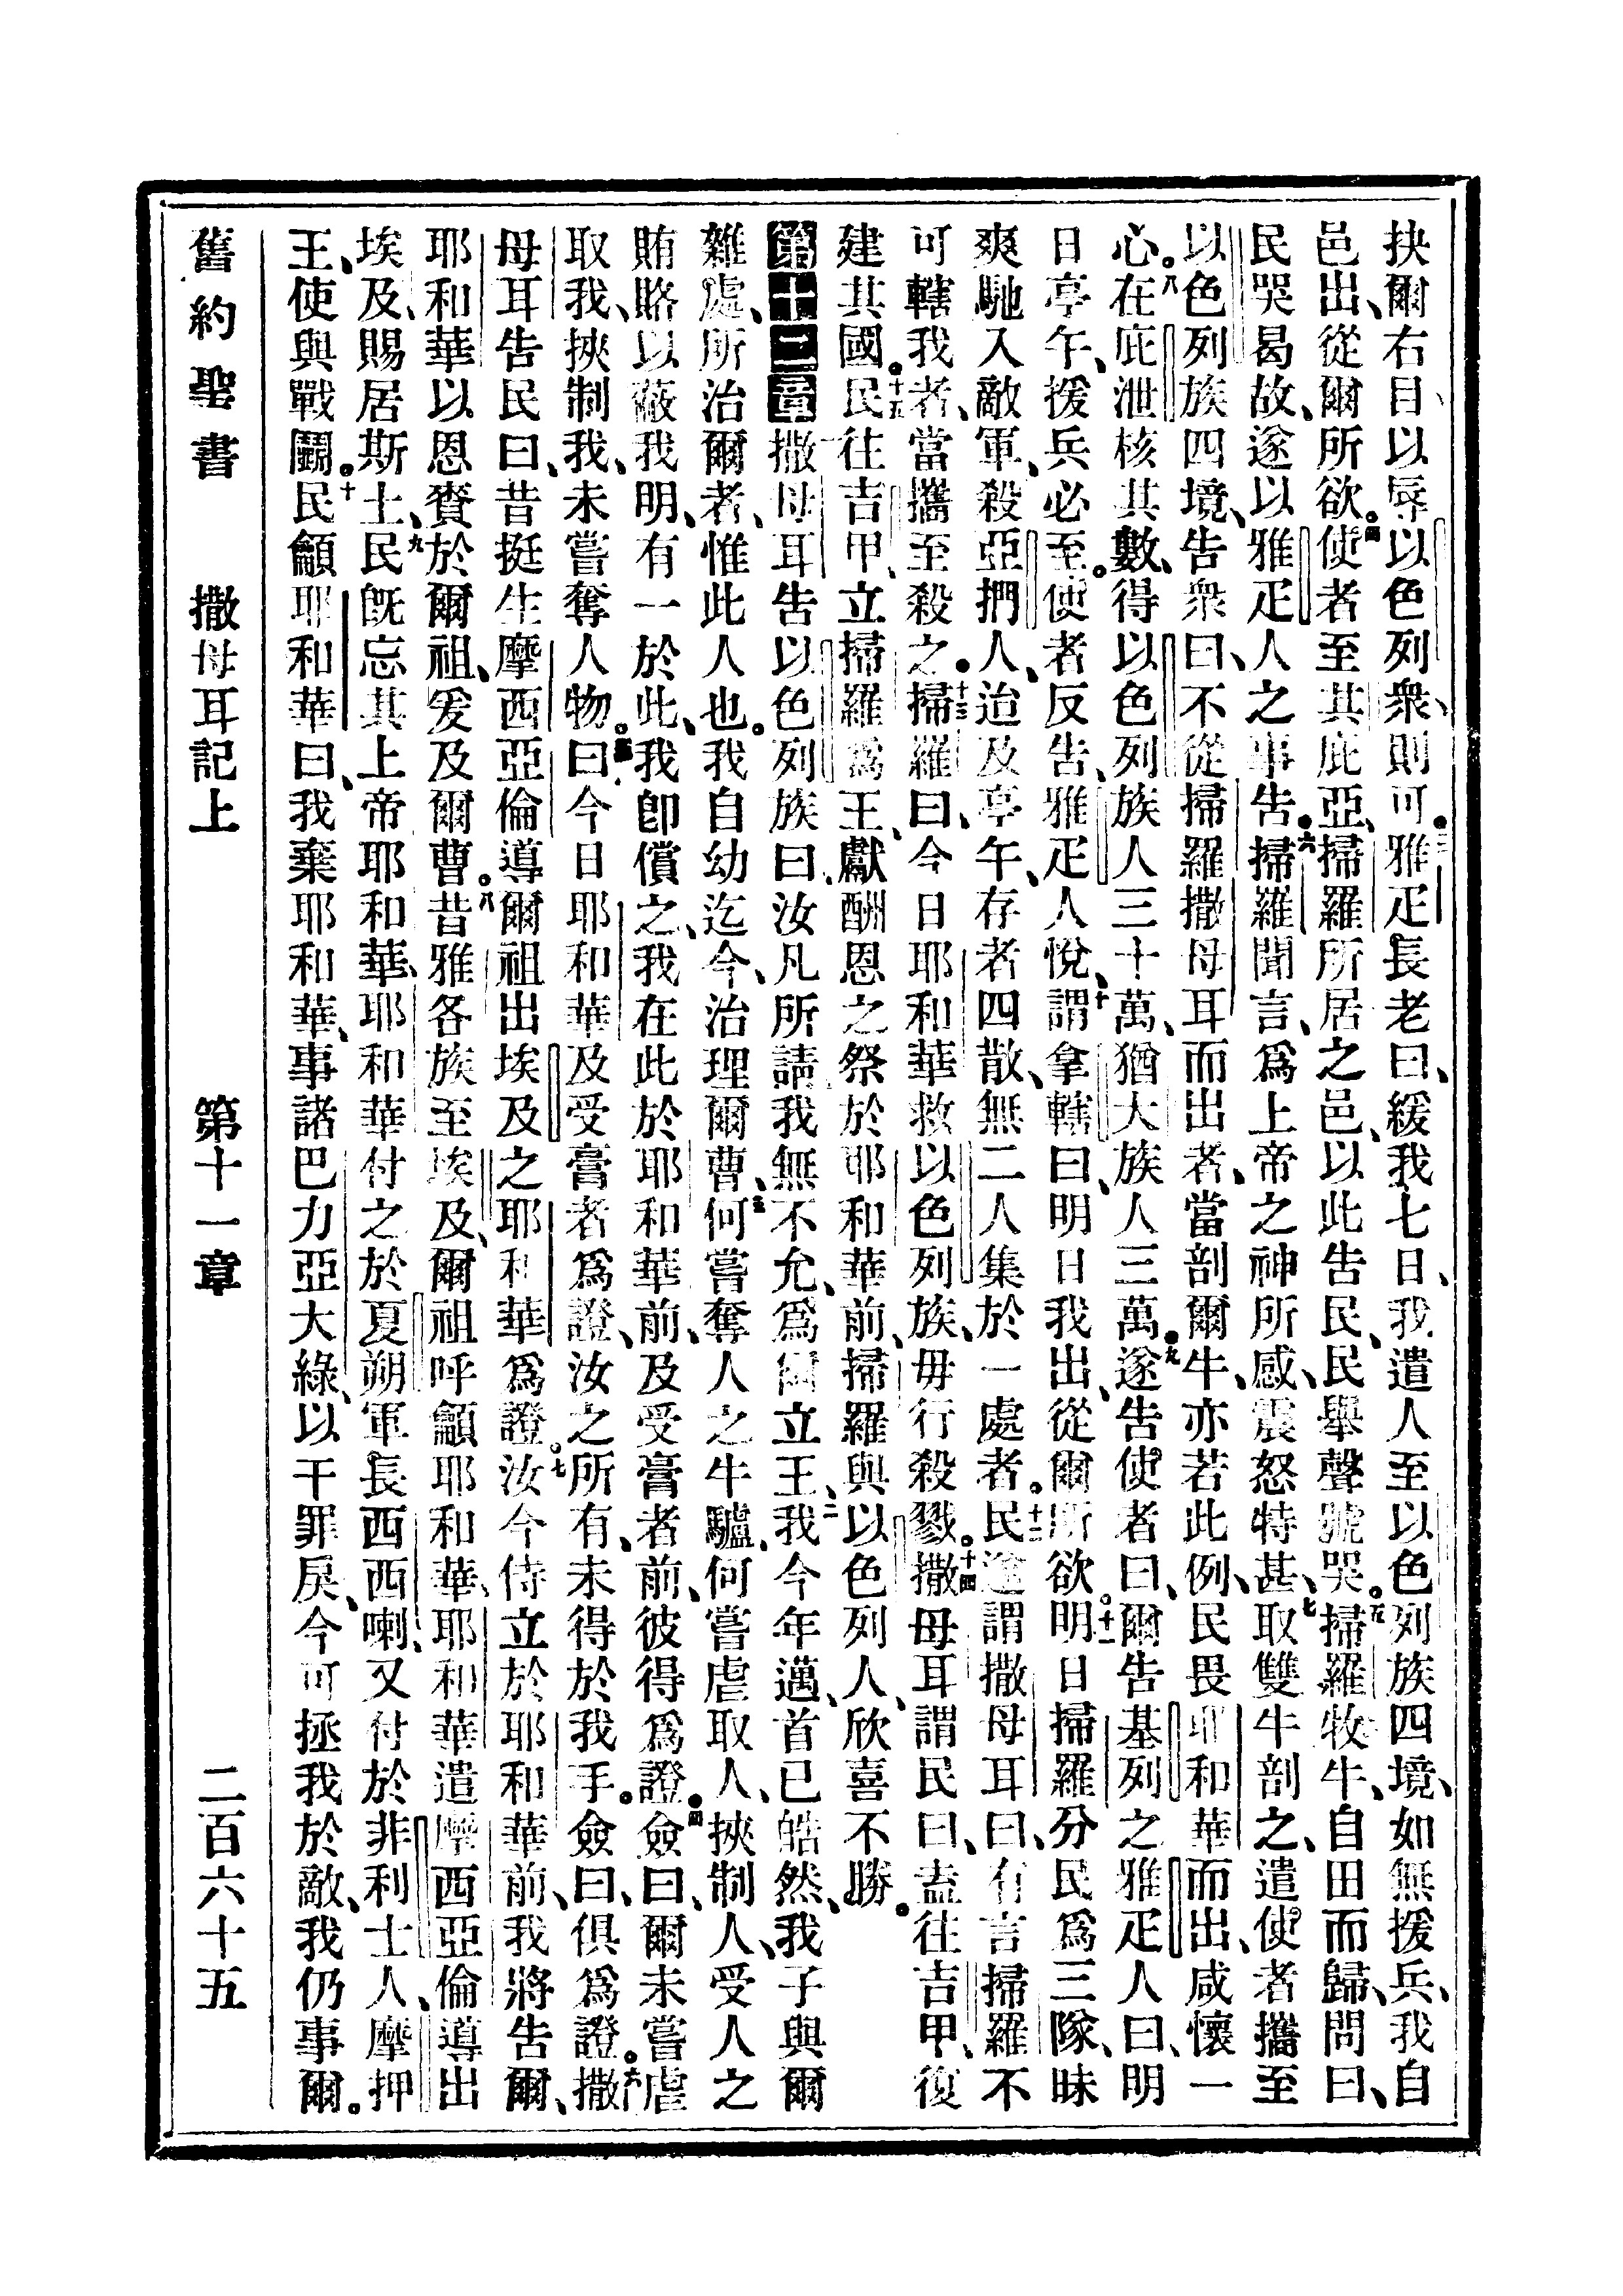 抉爾右目以辱以色列衆、則可、三雅疋長老曰、緩我七日、我遣人至以色列族四境、如無援兵、我自
邑出、從爾所欲。四使者至其庇亞、掃羅所居之邑、以此告民、民舉聲號哭。五掃羅牧牛、自田而歸、問曰、
民哭曷故、遂以雅疋人之事告。六掃羅聞言、爲上帝之神所感、震怒特甚、七取雙牛剖之、遣使者攜至
以色列族四境、告衆曰、不從掃羅撒母耳而出者、當剖爾牛、亦若此例、民畏耶和華而出、咸懷一
心。八在庇泄核其數、得以色列族人三十萬、猶大族人三萬。九遂告使者曰、爾告基列之雅疋人曰、明
日亭午、援兵必至。使者反告、雅疋人悅、十謂拿轄曰、明日我出、從爾所欲。十一明日掃羅分民爲三隊、昧
爽馳入敵軍、殺亞捫人、迨及亭午、存者四散、無二人集於一處者。十二民遂謂撒母耳曰、有言掃羅不
可轄我者、當攜至殺之。十三掃羅曰、今日耶和華救以色列族、毋行殺戮。十四撒母耳謂民曰、盍往吉甲、復
建其國。十五民往吉甲、立掃羅爲王、獻酬恩之祭於耶和華前、掃羅與以色列人、欣喜不勝。
第十二章 撒母耳告以色列族曰、汝凡所請、我無不允、爲爾立王、二我今年邁、首已皓然、我子與爾
雜處、所治爾者、惟此人也。我自幼迄今、治理爾曹、三何嘗奪人之牛驢、何嘗虐取人、挾制人、受人之
賄賂、以蔽我明、有一於此、我卽償之、我在此於耶和華前、及受膏者前、彼得爲證。四僉曰、爾未嘗虐
取我、挾制我、未嘗奪人物。五曰、今日耶和華及受膏者爲證、汝之所有、未得於我手。僉曰、俱爲證。六撒
母耳告民曰、昔挺生摩西亞倫、導爾祖出埃及之耶和華爲證。七汝今侍立於耶和華前、我將告爾、
耶和華以恩賚於爾祖、爰及爾曹。八昔雅各族至埃及、爾祖呼籲耶和華、耶和華遣摩西亞倫、導出
埃及、賜居斯土、九民旣忘其上帝耶和華、耶和華付之於夏朔軍長西西喇、又付於非利士人、摩押
王、使與戰鬭。十民籲耶和華曰、我棄耶和華、事諸巴力亞大綠、以干罪戾、今可拯我於敵、我仍事爾。
舊約聖書 撒母耳記上 第十一章 二百六十五